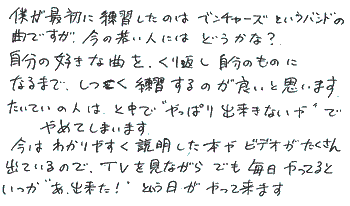 僕が最初に練習したのはベンチャーズというバンドの
曲ですが、今の若い人にはどうかな?
自分の好きな曲を、くり返し自分のものに
なるまで、しつこく練習するのが良いと思います
たいていの人は、と中で"やっぱり出来きないや"で
やめてしまいます
今はわかりやすく説明した本やビデオがたくさん
出ているので、TVを見ながらでも毎日やってると
いつか"あ、出来た!"という日がやって来ます